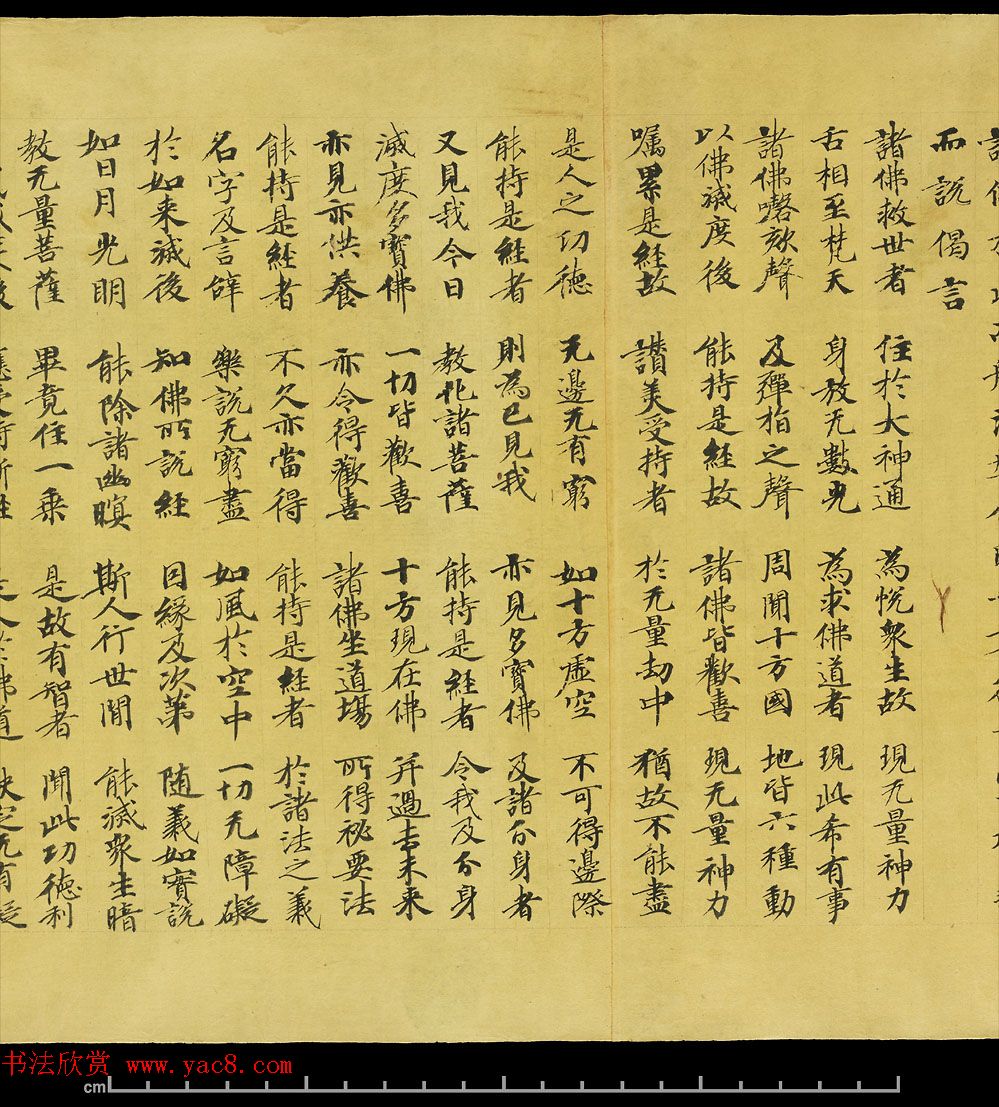 而說偈言
諸佛救世者 住於大神通 為悅眾生故 現无量神力
舌相至梵天 身放无數光 為求佛道者 現此希有事
諸佛謦欬聲 及彈指之聲 周聞十方國 地皆六種動
以佛滅度後 能持是經故 諸佛皆歡喜 現无量神力
囑累是經故 讚美受持者 於无量劫中 猶故不能盡
是人之功德 无邊无有窮 如十方虛空 不可得邊際
能持是經者 則為已見我 亦見多寶佛 及諸分身者
又見我今日 教化諸菩薩 能持是經者 令我及分身
滅度多寶佛 一切皆歡喜 十方現在佛 并過去未來
亦見亦供養 亦令得歡喜 諸佛坐道場 所得祕要法
能持是經者 不久亦當得 能持是經者 於諸法之義
名字及言辭 樂說无窮盡 如風於空中 一切无障礙
於如來滅後 知佛所說經 因緣及次第 隨義如實說
如日月光明 能除諸幽暝 斯人行世間 能滅眾生暗
教无量菩薩 畢竟住一乘 是故有智者 聞此功德利
書法欣赏 www.yac8.com
cm